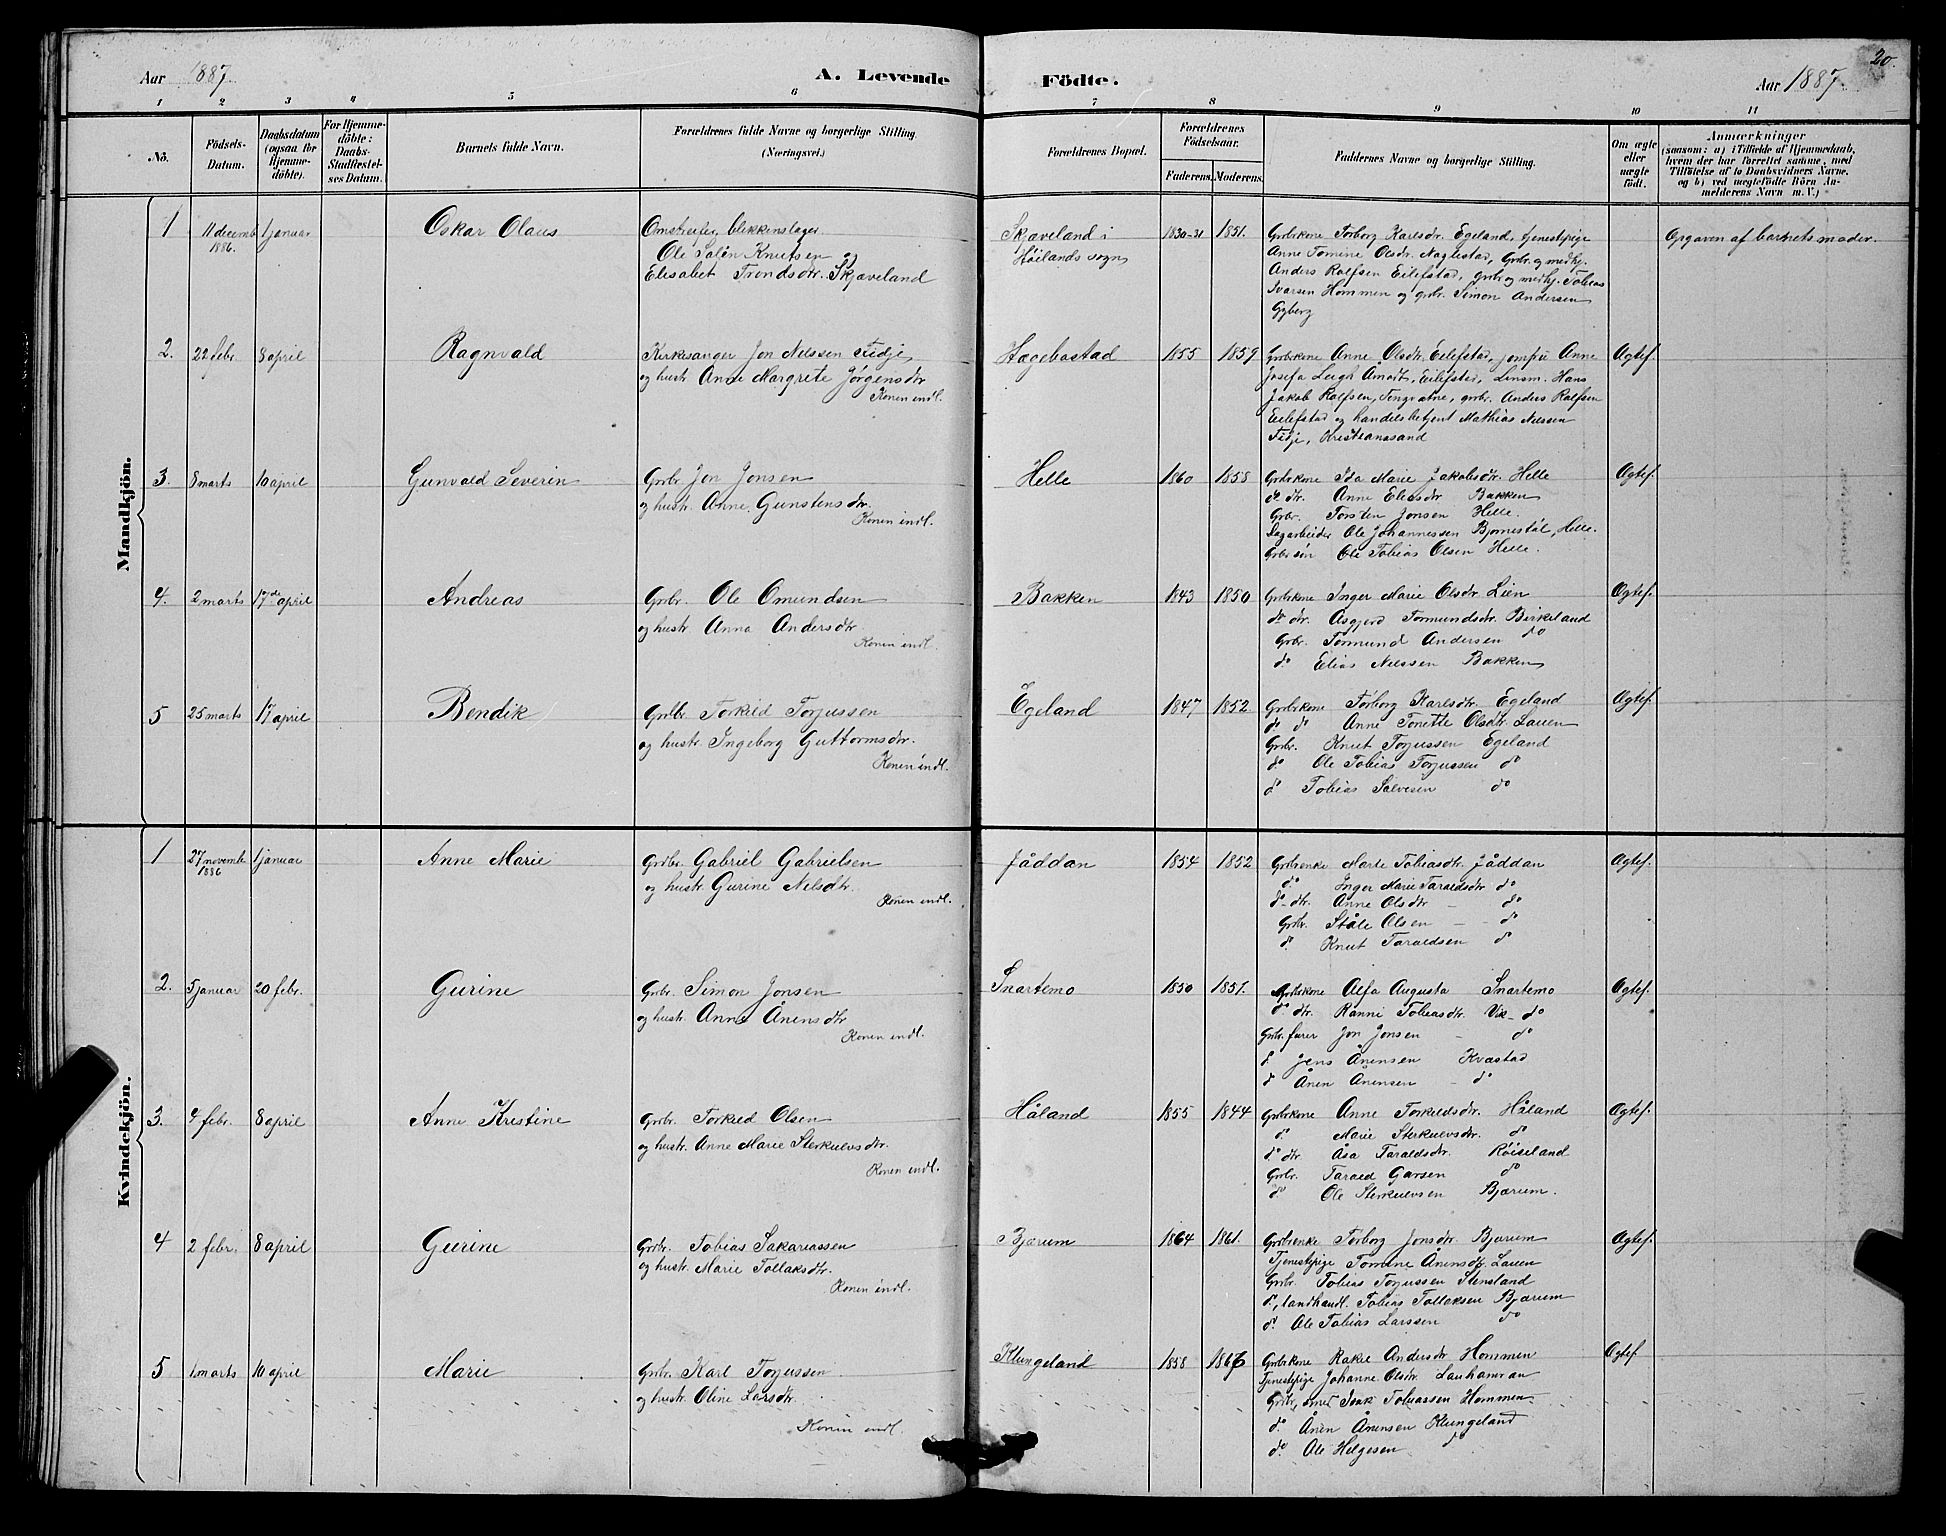 20.
Aar 1887.
A. Levende
Födte.
Aar 1887.
1 2 3 4 5 6 7 8 9 10 11
No.
Födsels-
Datum.
Daabsdatum
(ogsaa for
Hjemme-
döbte).
For Hjemme-
döbte:
Daabs-
Stadfæstel-
ses Datum.
Barnets fulde Navn.
Forældrenes fulde Navne og borgerlige Stilling.
(Næringsvei.)
Forældrenes Bopæl.
Forældrenes
Födselsaar.
Faderens. Moderens.
Faddernes Navne og borgerlige Stilling.
Om ægte
eller
uægte
födt.
Anmærkninger
(saasom: a) i Tilfælde af Hjemmedaab,
hvem der har forrettet samme, med
Tilföielse af to Daabsvidners Navne,
og b) ved uægtefödte Börn An-
melderens Navn m. V.)
Mandkjön.
1 11 decemb 1 januar Oskar Olaus
1886.
Omstreifer, blikkenslager
Ole Salén Knutsen og
Elisabet Trondsdtr. Skjaveland
Skjæveland i
Höilands sogn
1830-31 1851.
Grbrkone Torborg Karlsdtr. Egeland, tjenestpige
Anne Tomine Olsdtr. Naglestad, Grbr. og medhj.
Anders Rolfsen Eilefstad, grbr og medhj. Tobias
Ivarsen Hommen og grbr. Simon Andersen
Gyberg
Opgaven af barnets moder.
2. 22 febr. 8 april Ragnvald
Kirkesanger Jon Nilssen Fidje
og hustr. Anne Margrete Jörgensdtr
Konen indl.
Hægebostad 1855 1859
Grbrkone Anne Olsdtr. Eilefstad, jomfru Anne
Josefa Leigh Amodt, Eilefstad, Lensm. Hans
Jakob Rolfsen, Tengvatne, grbr. Anders Rolfsen
Eilefstad og handelsbetjent Mathias Nilssen
Fidje, Kristianssand
Ægtef.
3. 8 marts 10 april Gunvald Severin
Grbr. Jon Jonsen
og hustr. Anne Gunstensdtr.
Konen indl.
Helle 1860 1858
Grbrkone Ida Marie Jakobsdtr. Helle
do dtr. Anne Eliasdtr Bakken
Grbr. Torsten Jonsen Helle.
Dagarbeider Ole Johannessen Bjornestöl, Helle.
Grbr sön Ole Tobias Olsen Helle.
Ægtef.
4. 2 marts 17de april Andreas
Grbr. Ole Omundsen
og hustr. Anna Andersdtr.
Konen indl.
Bakken 1843 1850
Grbrkone Inger Marie Olsdtr Lien
do dtr. Asgjerd Tormundsdtr. Birkeland
Grbr. Tormund Andersen do
do Elias Nilssen Bakken
Ægtef.
5 25 marts 17 april Bendik
Grdbr. Torkild Torjussen
og hustr. Ingeborg Guttormsdtr.
Konen indl.
Egeland 1847 1852
Grbrkone Torborg Karlsdtr. Egeland
do do Anne Tonette Olsdtr. Lauen
Grbr. Knut Torjussen Egeland
do Ole Tobias Torjussen do
do Tobias Salvesen do
Ægtef.
Kvindekjön.
1 27 novemb 1 januar Anne Marie
1886
Grdbr. Gabriel Gabrielsen
og hustr. Gurine Nilsdtr.
Konen indl.
Jåddan 1854 1852
Grbrenke Marte Tobiasdtr. Jåddan
do Inger Marie Taraldsdtr do
do dtr. Anne Olsdtr - do
Grbr. Ståle Olsen - - do
do Knut Taraldsen do
Ægtef.
2. 5 januar 20 febr. Gurine
Grbr. Simon Jonsen
og hustr. Anne Ånensdtr
Konen indl.
Snartemo 1850 1851.
Grbrkone Alfa Augusta Snartemo
do dtr. Ranni Tobiasdtr. Vik - do
Grbr. furer Jon Jonsen - do
do Jens Ånensen Kvåstad
do Ånen Ånensen - do
Ægtef.
3. 4 febr. 8 april Anne Kristine
Grbr. Torkild Olsen
og hustr. Anne Marie Sterkulvsdtr.
Konen indl.
Håland 1855 1844
Grbrkone Anne Torkildsdtr. Håland
do Marie Sterkulvsdtr. do
do dtr. Åsa Taraldsdtr. Röiseland
Grbr. Tarald Garsen do
do Ole Sterkulvsen Bjærum.
Ægtef.
4 2 febr. 8 april Gurine
Grbr. Tobias Sakariassen
og hustr. Marie Tollaksdtr.
Konen indl.
Bjærum 1864 1861.
Grbrenke Torborg Jonsdtr. Bjærum
Tjenestpige Tomine Ånensdtr. Lauen
Grbr. Tobias Torjussen Stensland
do, landhandl. Tobias Tollaksen Bjærum
do Ole Tobias Larssen do
Ægtef.
5 1 marts 10 april Marie
Grbr. Karl Torjussen
og hustr. Oline Larsdtr.
Konen indl.
Klungeland 1858 1867
Grbrkone Rakel Andersdtr Hommen
Tjenestpige Johanne Olsdtr. Lauhamran
Grbr, smed Isak Tobiassen Hommen
do Ånen Ånensen Klungeland
do Ole Helgesen do
Ægtef